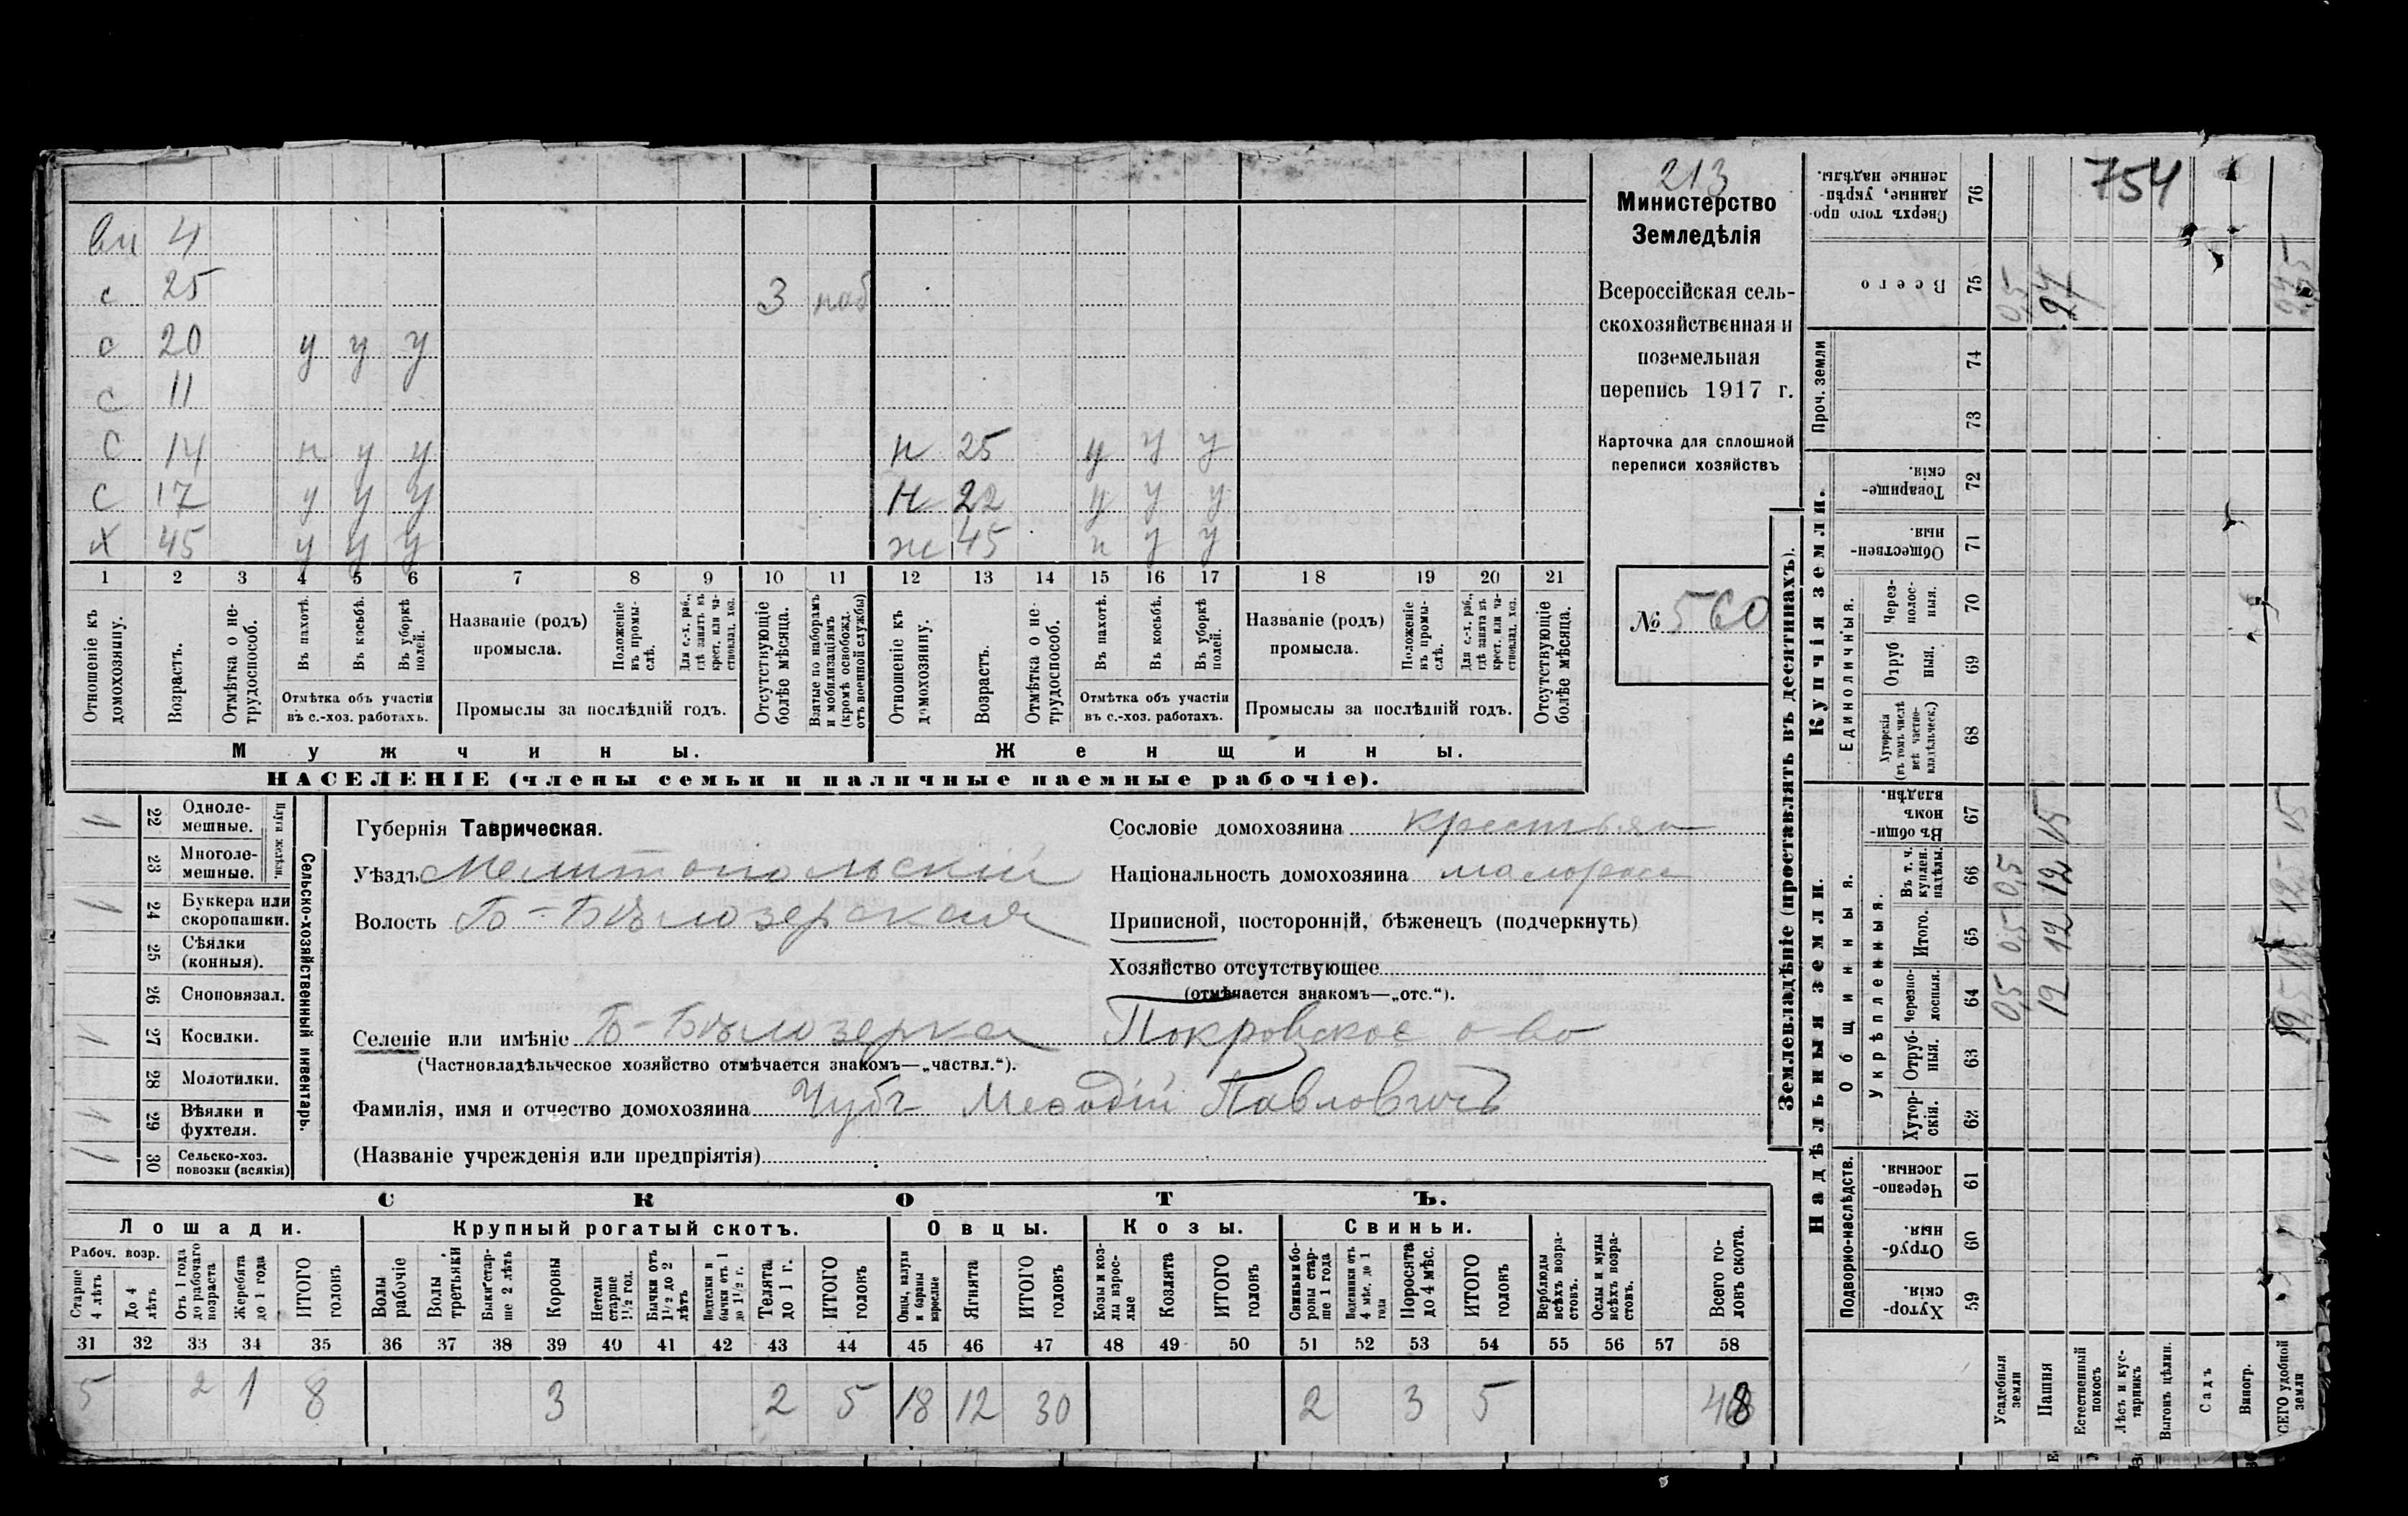 213
754
Министерство
Земледѣлія
Всероссійская сель-
скохозяйственная и
поземельная
перепись 1917 г.
Карточка для сплошной
переписи хозяйствъ
№ 560
вн 4
с 25 3 наб
с 20 у у у
с 11
с 14 н у у н 25 у у у
с 17 у у у н 22 у у у
х 45 у у у ж 45 н у у
1 2 3 4 5 6 7 8 9 10 11 12 13 14 15 16 17 18 19 20 21
Отношеніе къ домохозяину.
Возрастъ.
Отмѣтка о не-трудоспособ.
Въ пахотѣ.
Въ косьбѣ.
Въ уборкѣ полей.
Отмѣтка объ участіи въ с.-хоз. работахъ.
Названіе (родъ) промысла.
Положеніе въ промы-слѣ.
Для с.-х. раб., гдѣ занятъ въ крест. или ча-стновлад. хоз.
Промыслы за послѣдній годъ.
Отсутствующіе болѣе мѣсяца.
Взятые по наборамъ и мобилизаціямъ (кромѣ освобожд. отъ военной службы)
Отношеніе къ домохозяину.
Возрастъ.
Отмѣтка о не-трудоспособ.
Въ пахотѣ.
Въ косьбѣ.
Въ уборкѣ полей.
Отмѣтка объ участіи въ с.-хоз. работахъ.
Названіе (родъ) промысла.
Положеніе въ промы-слѣ.
Для с.-х. раб., гдѣ занята въ крест. или ча-стновлад. хоз.
Промыслы за послѣдній годъ.
Отсутствующіе болѣе мѣсяца.
Мужчины. Женщины.
НАСЕЛЕНІЕ (члены семьи и наличные наемные рабочіе).
Сельско-хозяйственный инвентарь.
Плуги желѣзн.
1 22 Одноле-мешные.
23 Многоле-мешные.
1 24 Буккера или скоропашки.
25 Сѣялки (конныя).
26 Сноповязал.
1 27 Косилки.
28 Молотилки.
1 29 Вѣялки и фухтеля.
1 30 Сельско-хоз. повозки (всякія)
Губернія Таврическая.
Уѣздъ Мелитопольскій
Волость Б-Бѣлозерская
Сословіе домохозяина крестьян
Національность домохозяина малоросс
Приписной, посторонній, бѣженецъ (подчеркнуть)
Хозяйство отсутствующее
(отмѣчается знакомъ—„отс.“).
Селеніе или имѣніе Б-Бѣлозерка Покровское о-во
(Частновладѣльческое хозяйство отмѣчается знакомъ—„частвл.“).
Фамилія, имя и отчество домохозяина Чубъ Меѳодій Павловичъ
(Названіе учрежденія или предпріятія)
СКОТЪ.
Лошади. Крупный рогатый скотъ. Овцы. Козы. Свиньи.
Рабоч. возр.
Старше 4 лѣтъ
До 4 лѣтъ
Отъ 1 года до рабочаго возраста
Жеребята до 1 года
ИТОГО головъ
Волы рабочіе
Волы третьяки
Быки стар-ше 2 лѣтъ
Коровы
Нетели старше 1½ год.
Бычки отъ 1½ до 2 лѣтъ
Подтелки и бычки отъ 1 до 1½ г.
Телята до 1 г.
ИТОГО головъ
Овцы, валухи и бараны взрослые
Ягнята
ИТОГО головъ
Козы и коз-лы взрос-лые
Козлята
ИТОГО головъ
Свиньи и бо-ровы стар-ше 1 года
Подсвинки отъ 4 мѣс. до 1 года
Поросята до 4 мѣс.
ИТОГО головъ
Верблюды всѣхъ возра-стовъ.
Ослы и мулы всѣхъ возра-стовъ.
Всего го-ловъ скота.
31 32 33 34 35 36 37 38 39 40 41 42 43 44 45 46 47 48 49 50 51 52 53 54 55 56 57 58
5 2 1 8 3 2 5 18 12 30 2 3 5 48
Землевладѣніе (проставлять въ десятинахъ).
Надѣльныя земли. Купчія земли. Проч. земли
Подворно-наслѣдств.
Общинныя.
Укрѣпленныя.
Единоличныя.
Хутор-скія. 59
Отруб-ныя. 60
Черезпо-лосныя. 61
Хутор-скія. 62
Отруб-ныя. 63
Черезпо-лосныя. 64
Итого. 65
Въ т. ч. куплен. надѣлы. 66
Въ общи-номъ владѣн. 67
Хуторскія (въ томъ числѣ всѣ частно-владѣльческ.) 68
Отруб ныя. 69
Через-полос-ныя. 70
Обществен-ныя. 71
Товарище-скія. 72
73
74
Всего 75
Сверхъ того про-данные, укрѣп-ленные надѣлы. 76
Усадебныя земли 0,5 0,5 0,5 0,5
Пашня 12 12 12 15
Естественный покосъ
Лѣсъ и кус-тарникъ
Выгонъ цѣлин.
Садъ
Виногр.
СЕГО удобной земли